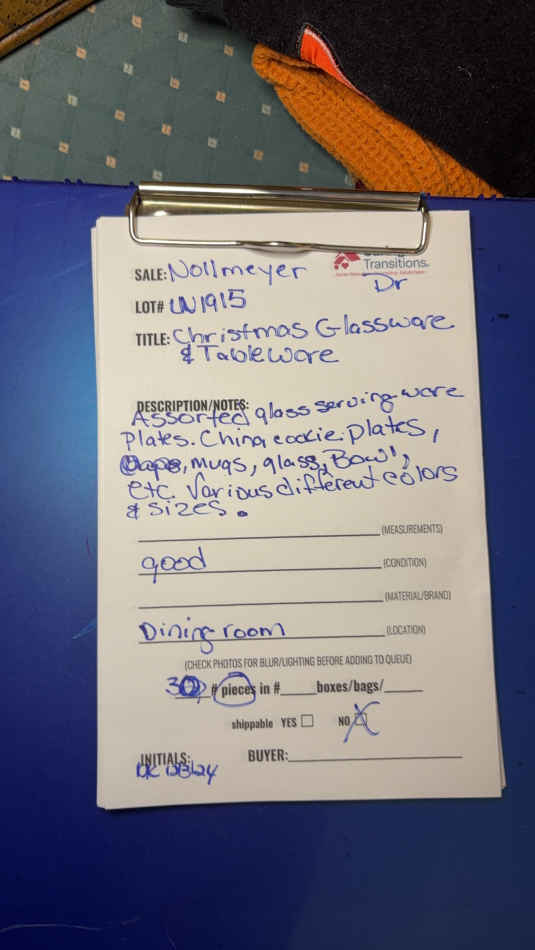 Transitions®
SALE: Nollmeyer Dr
LOT# UN1915
TITLE: Christmas Glassware
& Tableware
DESCRIPTION/NOTES:
Assorted glass serving ware
Plates. China, cookie plates,
mugs, glass, Bowl,
etc. Various different colors
& sizes.
(MEASUREMENTS)
good (CONDITION)
(MATERIAL/BRAND)
Dining room (LOCATION)
(CHECK PHOTOS FOR BLUR/LIGHTING BEFORE ADDING TO QUEUE)
30 # pieces in #_____boxes/bags/_____
shippable YES ☐ NO ☒
INITIALS: BUYER: